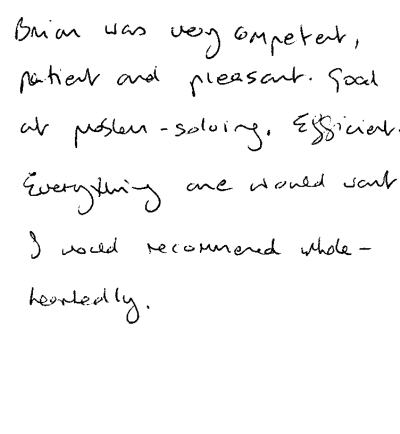 Brian was very competent,
patient and pleasant. Good
at problem-solving. Efficient.
Everything one would want
I would recommend whole-
heartedly.